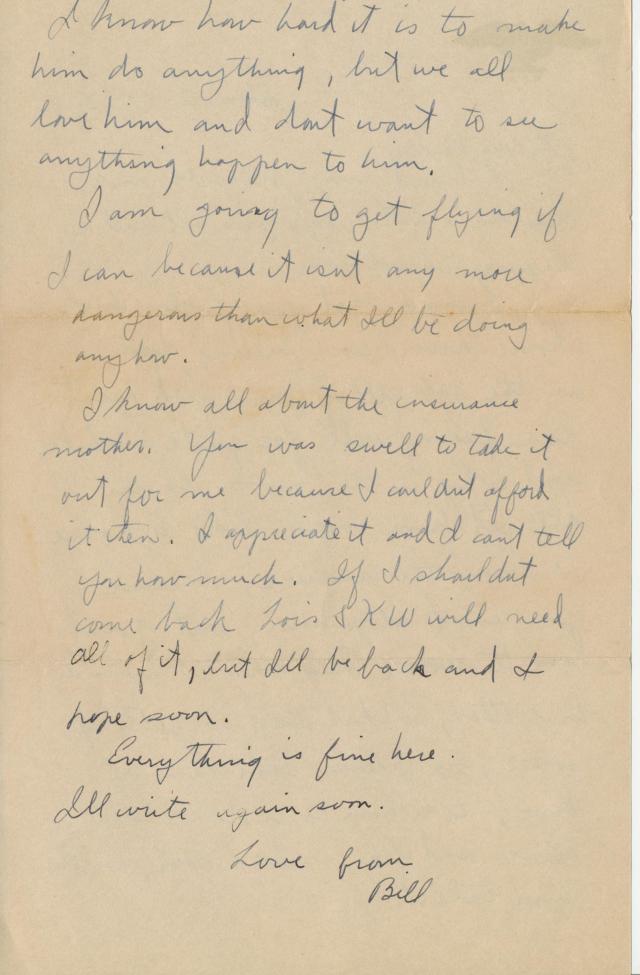 I know how hard it is to make
him do anything, but we all
love him and dont want to see
anything happen to him.
I am going to get flying if
I can because it isnt any more
dangerous than what Ill be doing
anyhow.
I know all about the insurance
mother. You was swell to take it
out for me because I couldnt afford
it then. I appreciate it and I cant tell
you how much. If I shouldnt
come back Lois & KW will need
all of it, but Ill be back and I
hope soon.
Everything is fine here.
Ill write again soon.
Love from
Bill